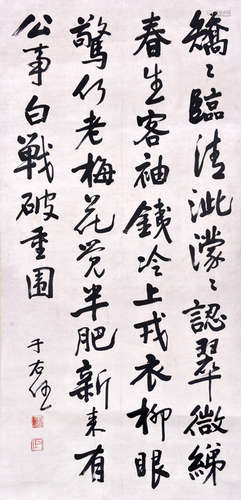 矯〻臨清泚濛〻認翠微綈
春生客袖銕冷上戎衣柳眼
驚何老梅花覺半肥新来有
公事白戰破重圍
于右任